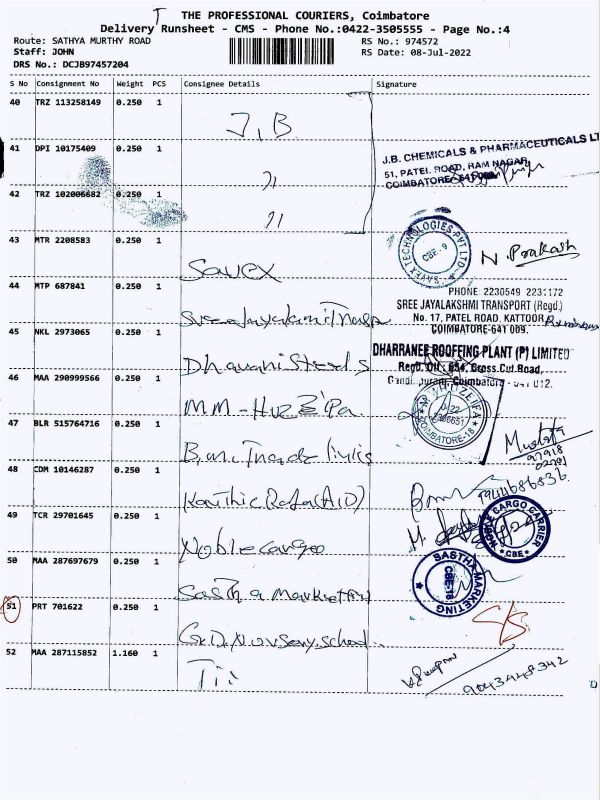 THE PROFESSIONAL COURIERS, Coimbatore
Delivery Runsheet - CMS - Phone No.:0422-3505555 - Page No.:4
Route: SATHYA MURTHY ROAD
RS No.: 974572
Staff: JOHN
RS Date: 08-Jul-2022
DRS No.: DCJB97457204
S No Consignment No Weight PCS Consignee Details Signature
40 TRZ 113258149 0.250 1
J,B
41 DPI 10175409 0.250 1
J.B. CHEMICALS & PHARMACEUTICALS LT
51, PATEL ROAD, RAM NAGAR,
COIMBATORE-641 009.
"
42 TRZ 102006682 0.250 1
"
43 MTR 2208583 0.250 1
SAVEX TECHNOLOGIES PVT LTD
CBE-9
N. Prakash
Savex
44 MTP 687841 0.250 1
PHONE: 2230549, 2231172
SREE JAYALAKSHMI TRANSPORT (Regd.)
No. 17, PATEL ROAD, KATTOOR
COIMBATORE-641 009.
Sree Jayalakmi
45 NKL 2973065 0.250 1
DHARRANEE ROOFFING PLANT (P) LIMITED
Regd. Off : 654, Cross Cut Road,
Gandhipuram, Coimbatore - 641 012.
Steels
46 MAA 290999566 0.250 1
MM-
COIMBATORE-18
47 BLR 515764716 0.250 1
Mustafa
97918
B.M. Trade links
48 CDM 10146287 0.250 1
49 TCR 29701645 0.250 1
NOBLE CARGO CARRIER
CBE
Noble cargo
50 MAA 287697679 0.250 1
SASTHA MARKETING
CBE-18
Sastha marketing
51 PRT 701622 0.250 1
G.R.D. Nursery. school.
52 MAA 287115852 1.160 1
9043448342